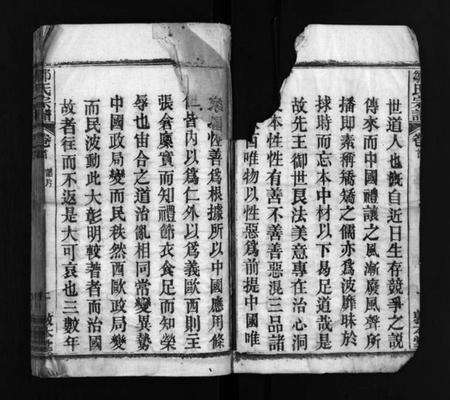 世道人也慨自近日生存競爭之說
傳來而中國禮讓之風漸靡風聲所
播即素稱矯矯之儔亦為波靡昧於
捄時而忘本中材以下曷足道哉是
故先王御世長法美意專在治心洞
本性性有善不善善惡混三品諸
西唯物以性惡為前提中國唯
性善為根據所以中國應用條
仁皆內以為仁外以為義歐西則
張倉廩實而知禮節衣食足而知榮
辱也宙合之道治亂相同常變異勢
中國政局變而民秩然西歐政局變
而民波動此大彰明較著者而治國
故者往而不返是大可哀也三數年
鄒氏宗譜
卷首